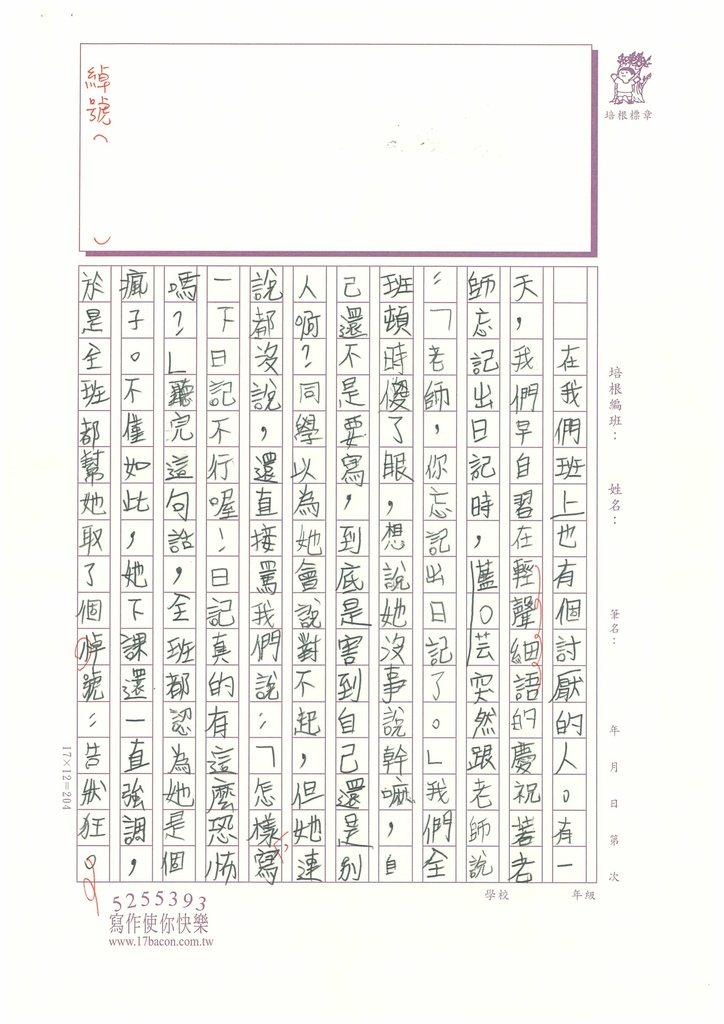 綽號（　）
培根標章
培根編班：　姓名：　筆名：　年　月　日　第　次
在我們班上也有個討厭的人。有一
天，我們早自習在輕聲細語的慶祝著老
師忘記出日記時，藍○芸突然跟老師說
：「老師，你忘記出日記了。」我們全
班頓時傻了眼，想說她沒事說幹嘛，自
己還不是要寫，到底是害到自己還是別
人啊？同學以為她會說對不起，但她連
說都沒說，還直接罵我們說：「怎樣寫
一下日記不行喔！日記真的有這麼恐怖
嗎？」聽完這句話，全班都認為她是個
瘋子。不僅如此，她下課還一直強調，
於是全班都幫她取了個悼號：告狀狂。
17×12=204
學校　年級
5255393
寫作使你快樂
www.17bacon.com.tw